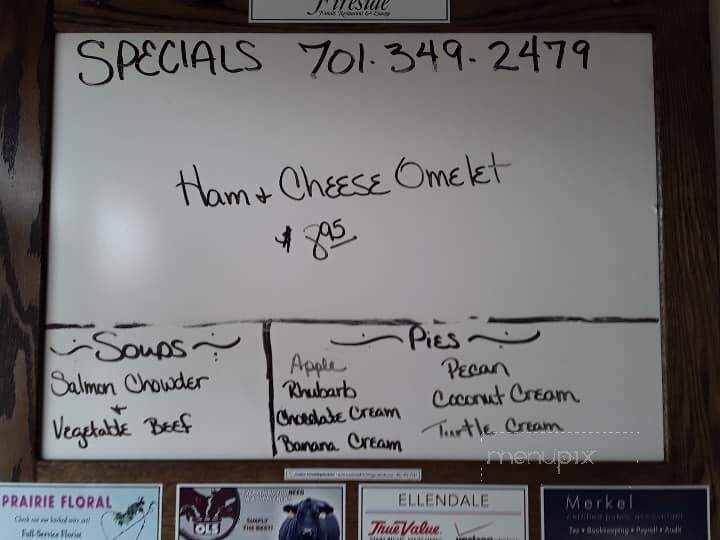 Fireside
Foods Restaurant & Lounge
SPECIALS 701-349-2479
Ham & CHEESE Omelet
$ 8.95
Soups
Salmon Chowder
&
Vegetable Beef
PIES
Apple
Rhubarb
Chocolate Cream
Banana Cream
Pecan
Coconut Cream
Turtle Cream
menupix
PRAIRIE FLORAL
Check out our cooked
Full-Service Florist
BEEF
OLS
SIMPLY
THE BEST!
ELLENDALE
True Value
verizon
Merkel
certified public accountant
Tax • Bookkeeping • Payroll • Audit